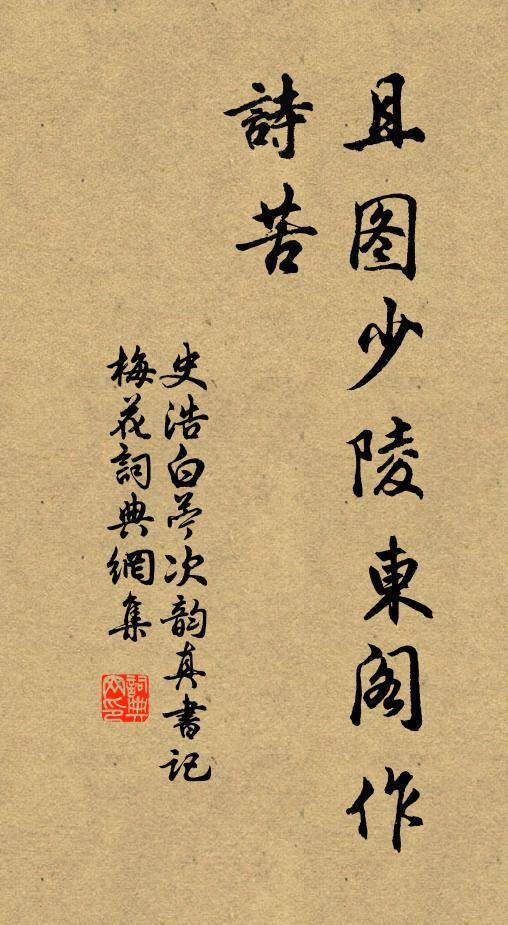 且图少陵東阁作
詩苦
史浩白苎次韵真書記
梅花詞典網集
詞典